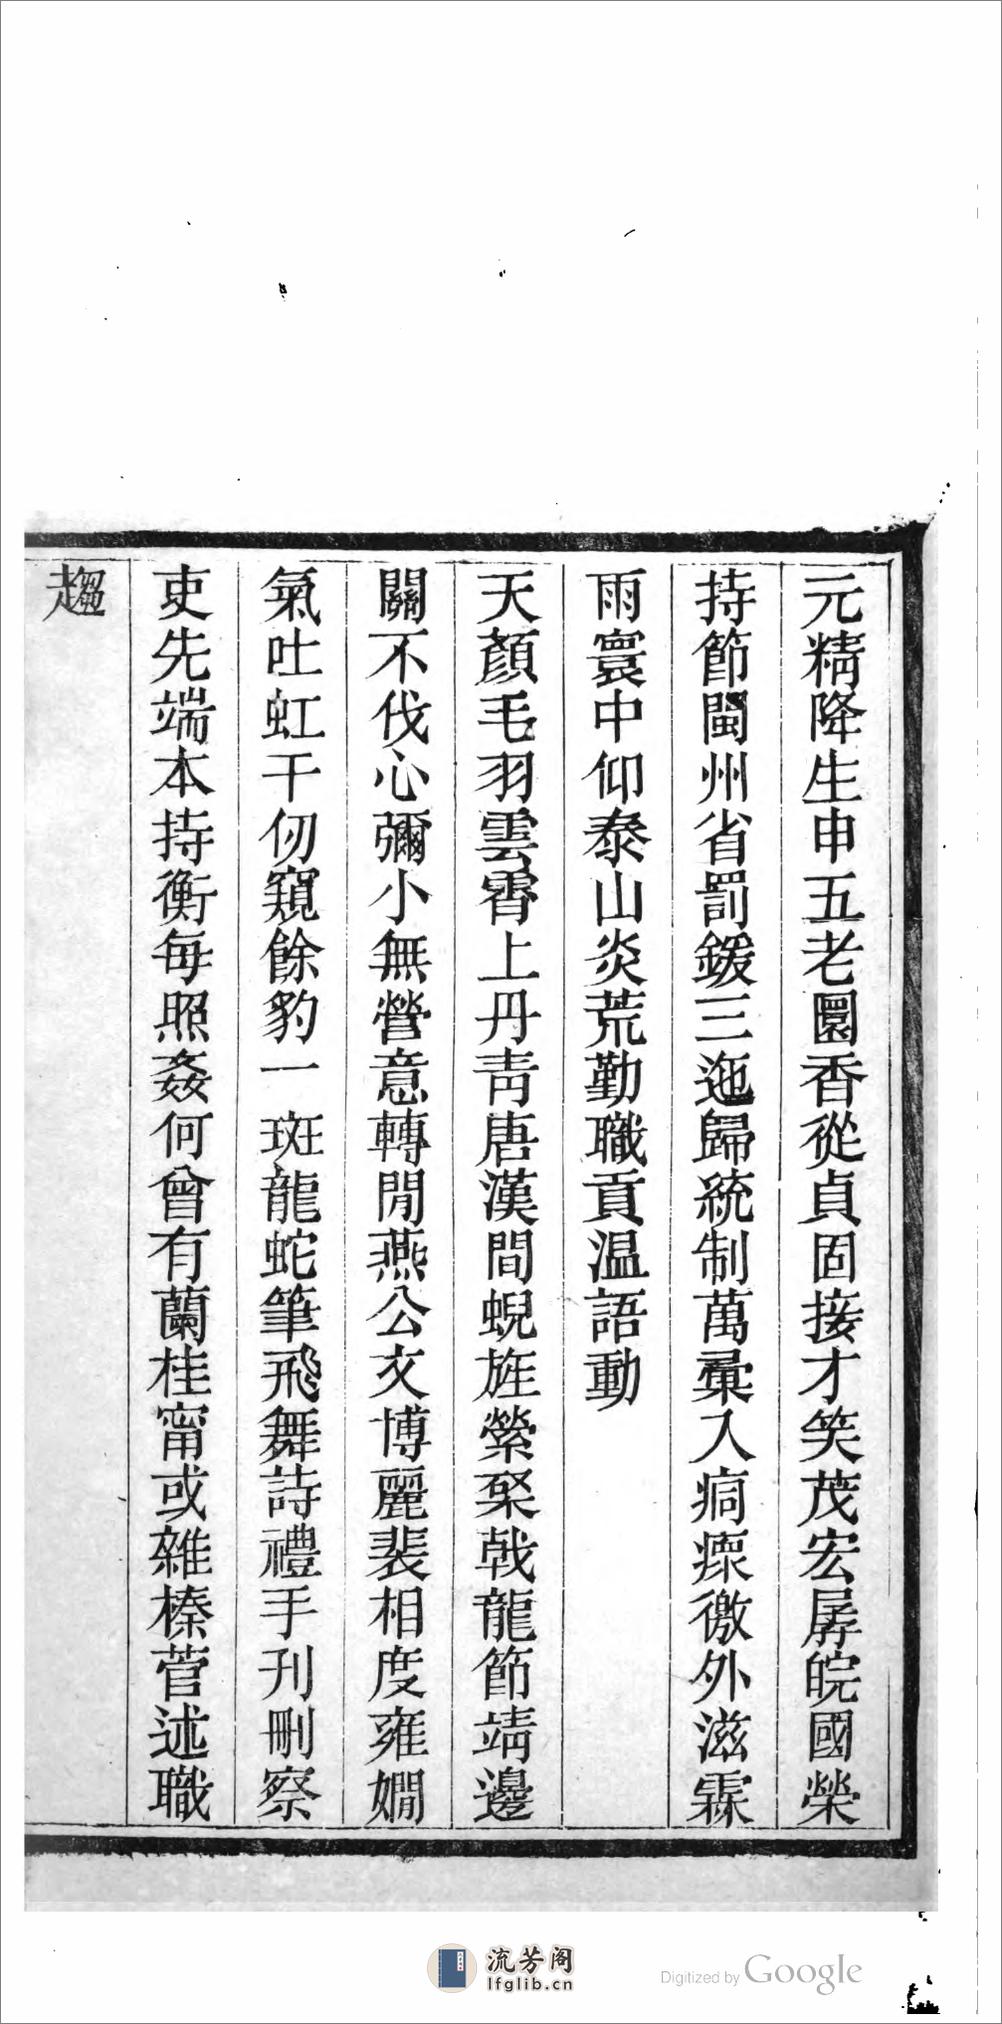 元精降生申五老園香從貞固接才笑茂宏孱皖國榮
持節閩州省罰鍰三迤歸統制萬彙入痌瘝徼外滋霖
雨寰中仰泰山炎荒勤職貢温語動
天顏毛羽雲霄上丹靑唐漢間蜺旌縈棨戟龍節靖邊
關不伐心彌小無營意轉閒燕公文博麗裴相度雍嫺
氣吐虹干仞窺餘豹一斑龍蛇筆飛舞詩禮手刊刪察
吏先端本持衡每照姦何曾有蘭桂甯或雜榛菅述職
趨
流芳阁
lfglib.cn
Digitized by Google